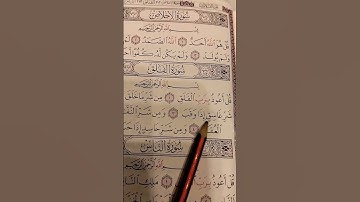 سُورَةُ الإِخْلَاصِ
بِسْمِ اللَّهِ الرَّحْمَٰنِ الرَّحِيمِ
قُلْ هُوَ اللَّهُ أَحَدٌ ۝ اللَّهُ الصَّمَدُ ۝ لَمْ
يُولَدْ ۝ وَلَمْ يَكُن لَّهُ كُفُوًا أَحَدٌ
سُورَةُ الْفَلَقِ
بِسْمِ اللَّهِ الرَّحْمَٰنِ الرَّحِيمِ
قُلْ أَعُوذُ بِرَبِّ الْفَلَقِ ۝ مِن شَرِّ مَا خَلَقَ
شَرِّ غَاسِقٍ إِذَا وَقَبَ ۝ وَمِن شَرِّ
وَمِن شَرِّ حَاسِدٍ إِذَا
سُورَةُ النَّاسِ
بِسْمِ اللَّهِ الرَّحْمَٰنِ الرَّحِيمِ
قُلْ أَعُوذُ بِرَبِّ النَّاسِ ۝ مَلِكِ